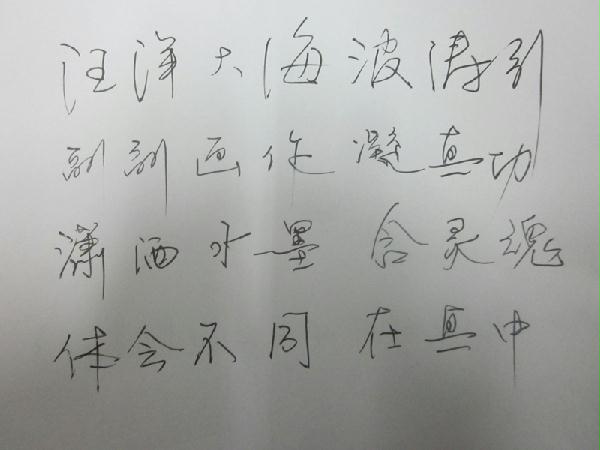 汪洋大海波涛引
副副画作凝真功
潇洒水墨含灵魂
体会不同在其中